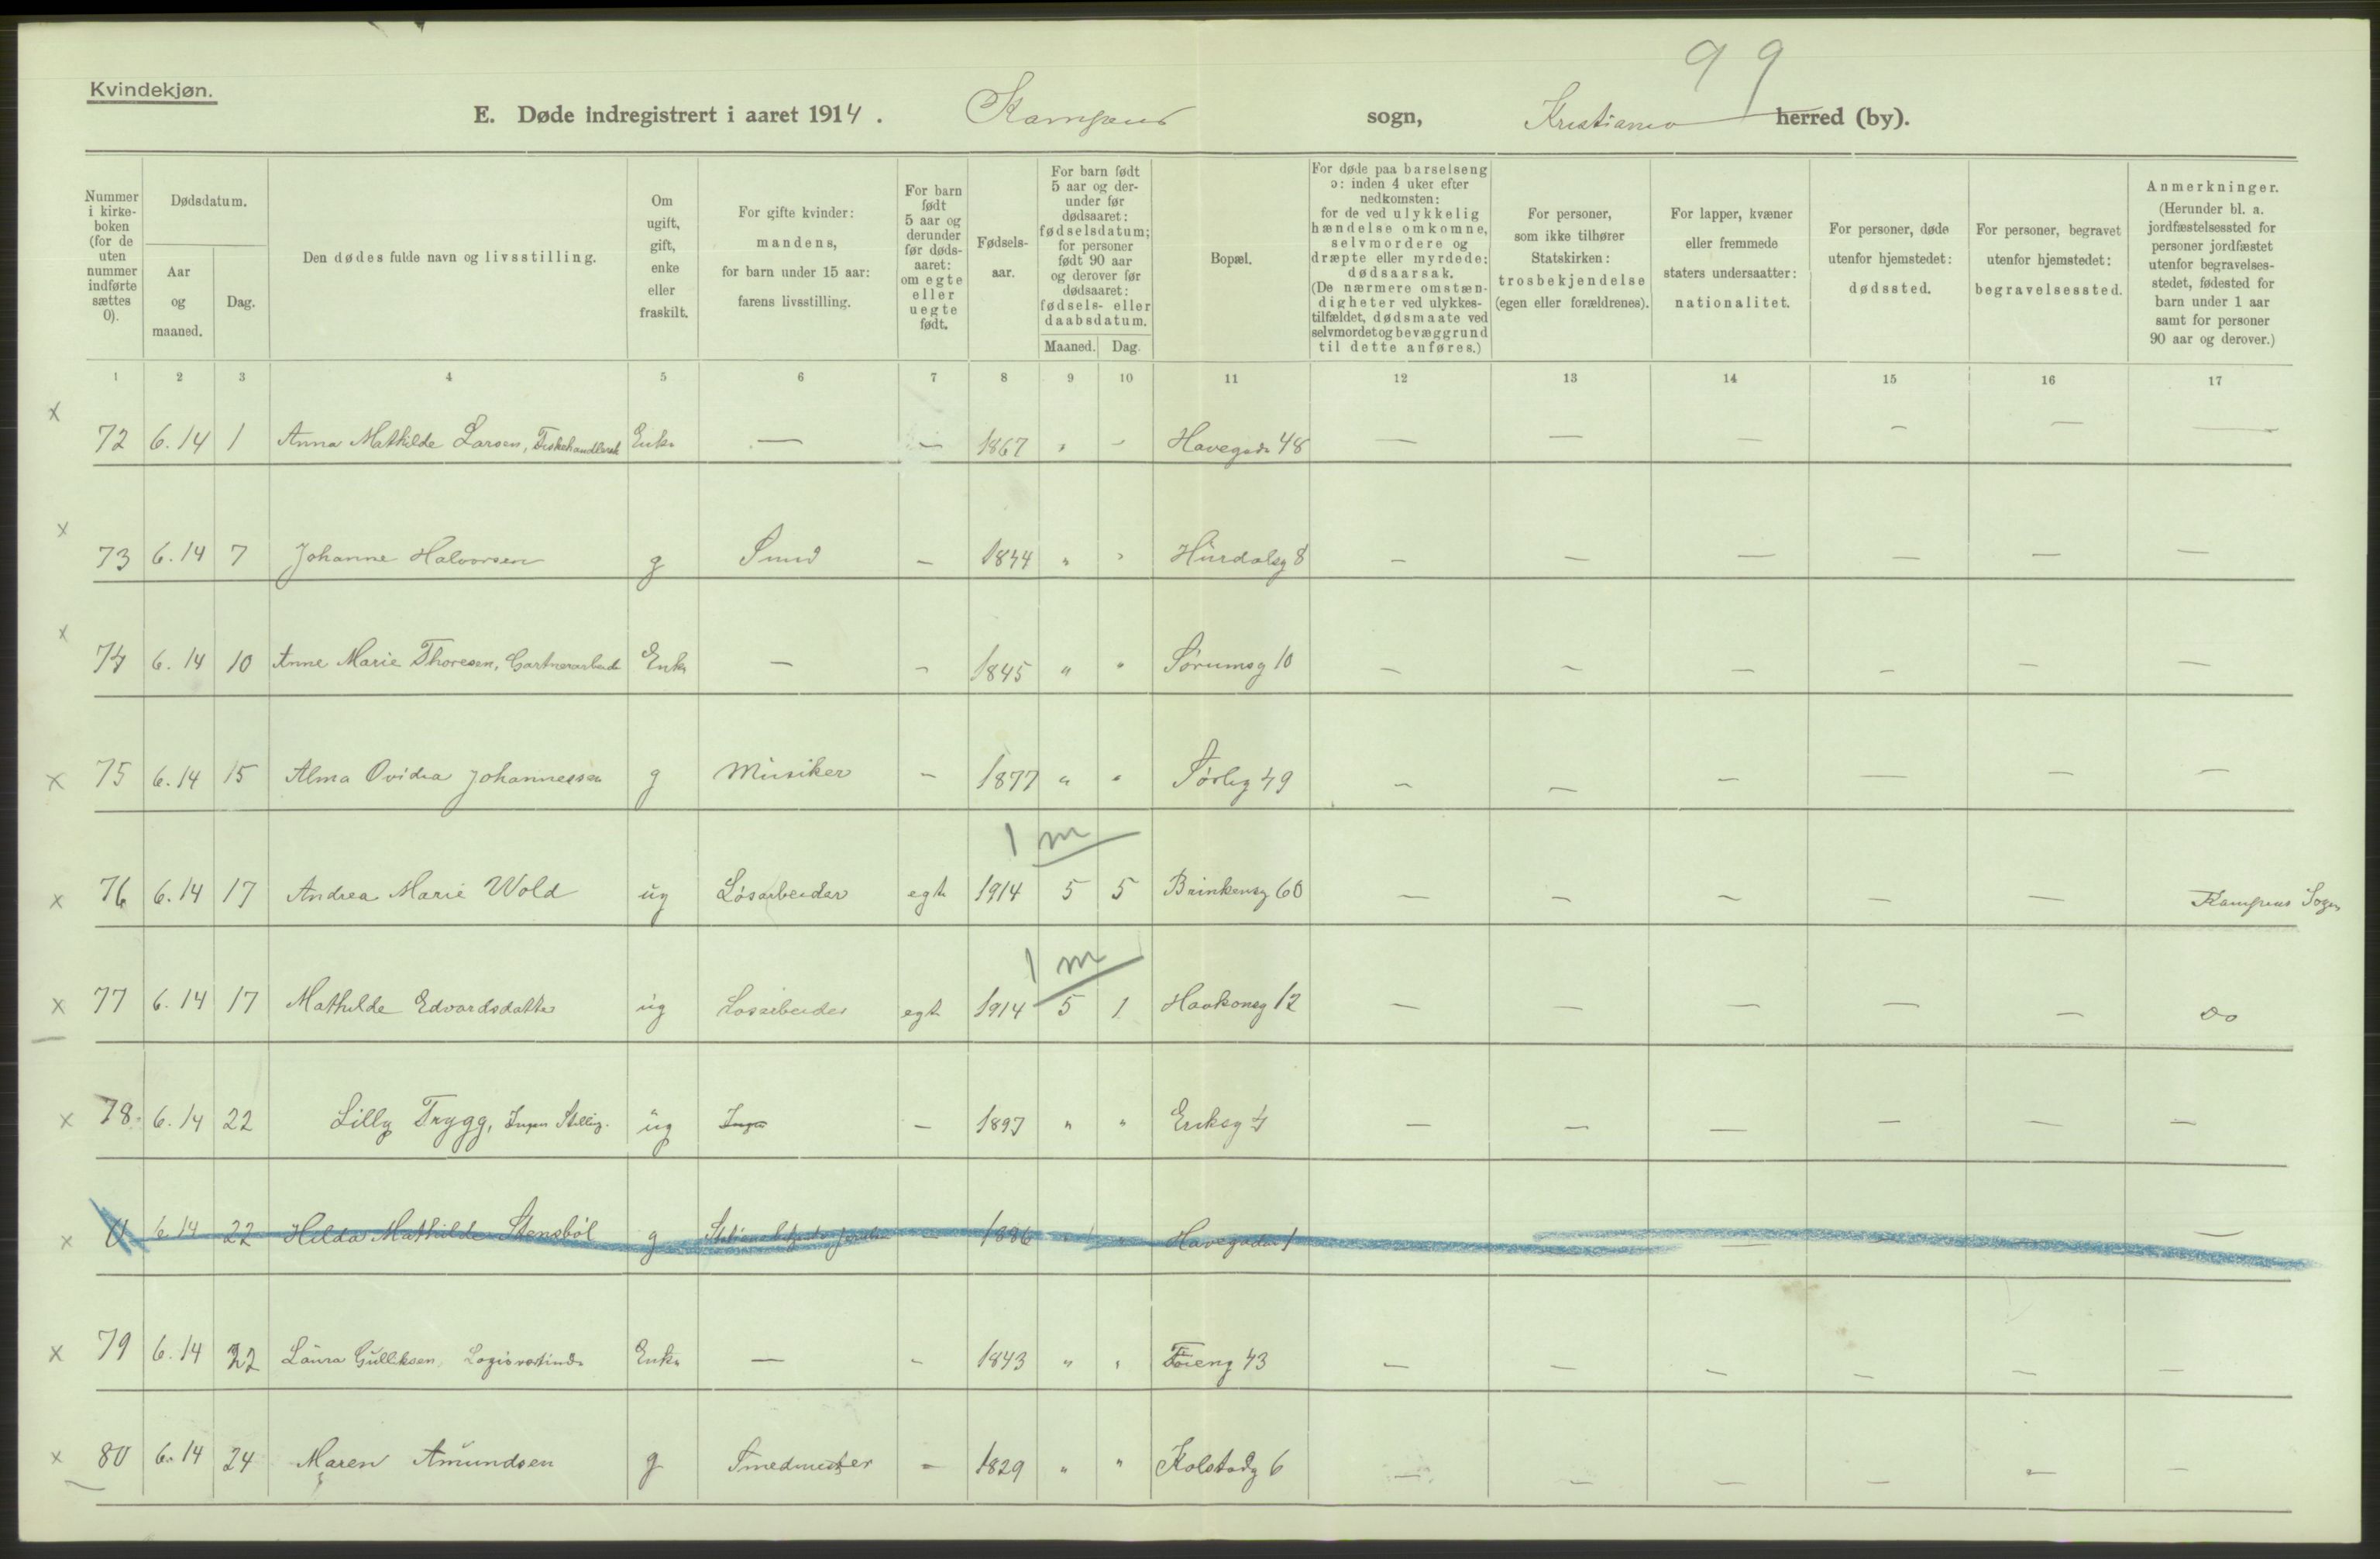 99
Kvindekjøn.
E. Døde indregistrert i aaret 1914. Kampens sogn, Kristiania herred (by).
Nummer i kirke-boken (for de uten nummer indførte sættes 0).
Dødsdatum.
Aar og maaned.
Dag.
Den dødes fulde navn og livsstilling.
Om ugift, gift, enke eller fraskilt.
For gifte kvinder: mandens, for barn under 15 aar: farens livsstilling.
For barn født 5 aar og derunder før døds-aaret: om egte eller uegte født.
Fødsels-aar.
For barn født 5 aar og der-under før dødsaaret: fødselsdatum; for personer født 90 aar og derover før dødsaaret: fødsels- eller daabsdatum.
Maaned. Dag.
Bopæl.
For døde paa barselseng ɔ: inden 4 uker efter nedkomsten: for de ved ulykkelig hændelse omkomne, selvmordere og dræpte eller myrdede: dødsaarsak. (De nærmere omstæn-digheter ved ulykkes-tilfældet, dødsmaate ved selvmordet og bevæggrund til dette anføres.)
For personer, som ikke tilhører Statskirken: trosbekjendelse (egen eller forældrenes).
For lapper, kvæner eller fremmede staters undersaatter: nationalitet.
For personer, døde utenfor hjemstedet: dødssted.
For personer, begravet utenfor hjemstedet: begravelsessted.
Anmerkninger. (Herunder bl. a. jordfæstelsessted for personer jordfæstet utenfor begravelses-stedet, fødested for barn under 1 aar samt for personer 90 aar og derover.)
1 2 3 4 5 6 7 8 9 10 11 12 13 14 15 16 17
x 72 6.14 1 Anna Mathilde Larsen, Fiskehandlersk Enke — — 1867 " " Havegada 48 — — — — — —
x 73 6.14 7 Johanne Halvorsen g Smed — 1844 " " Hurdalsg 8 — — — — — —
x 74 6.14 10 Anne Marie Thoresen, Gartnerarbeid Enke — — 1845 " " Sørumsg 10 — — — — — —
x 75 6.14 15 Alma Ovidia Johannessen g Musiker — 1877 " " Sørlig 49 — — — — — —
1 m
x 76 6.14 17 Andrea Marie Wold ug Løsarbeider egte 1914 5 5 Brinkensg 60 — — — — — Kampens Sogn
1 m
x 77 6.14 17 Mathilde Edvardsdatter ug Løsarbeider egte 1914 5 1 Haakonsg 12 — — — — — Do
x 78 6.14 22 Lilly Trygg, Ingen Stilling. ug Ingen — 1897 " " Eriksg 4 — — — — — —
x 0 6.14 22 Hilda Mathilde Stensbøl g — 1886 " " Havegada 1 — — — — — —
x 79 6.14 22 Laura Gulliksen, Logisvertinde Enke — — 1843 " " 43 — — — — — —
x 80 6.14 24 Maren Amundsen g Smedmester — 1829 " " Kolstadg 6 — — — — — —